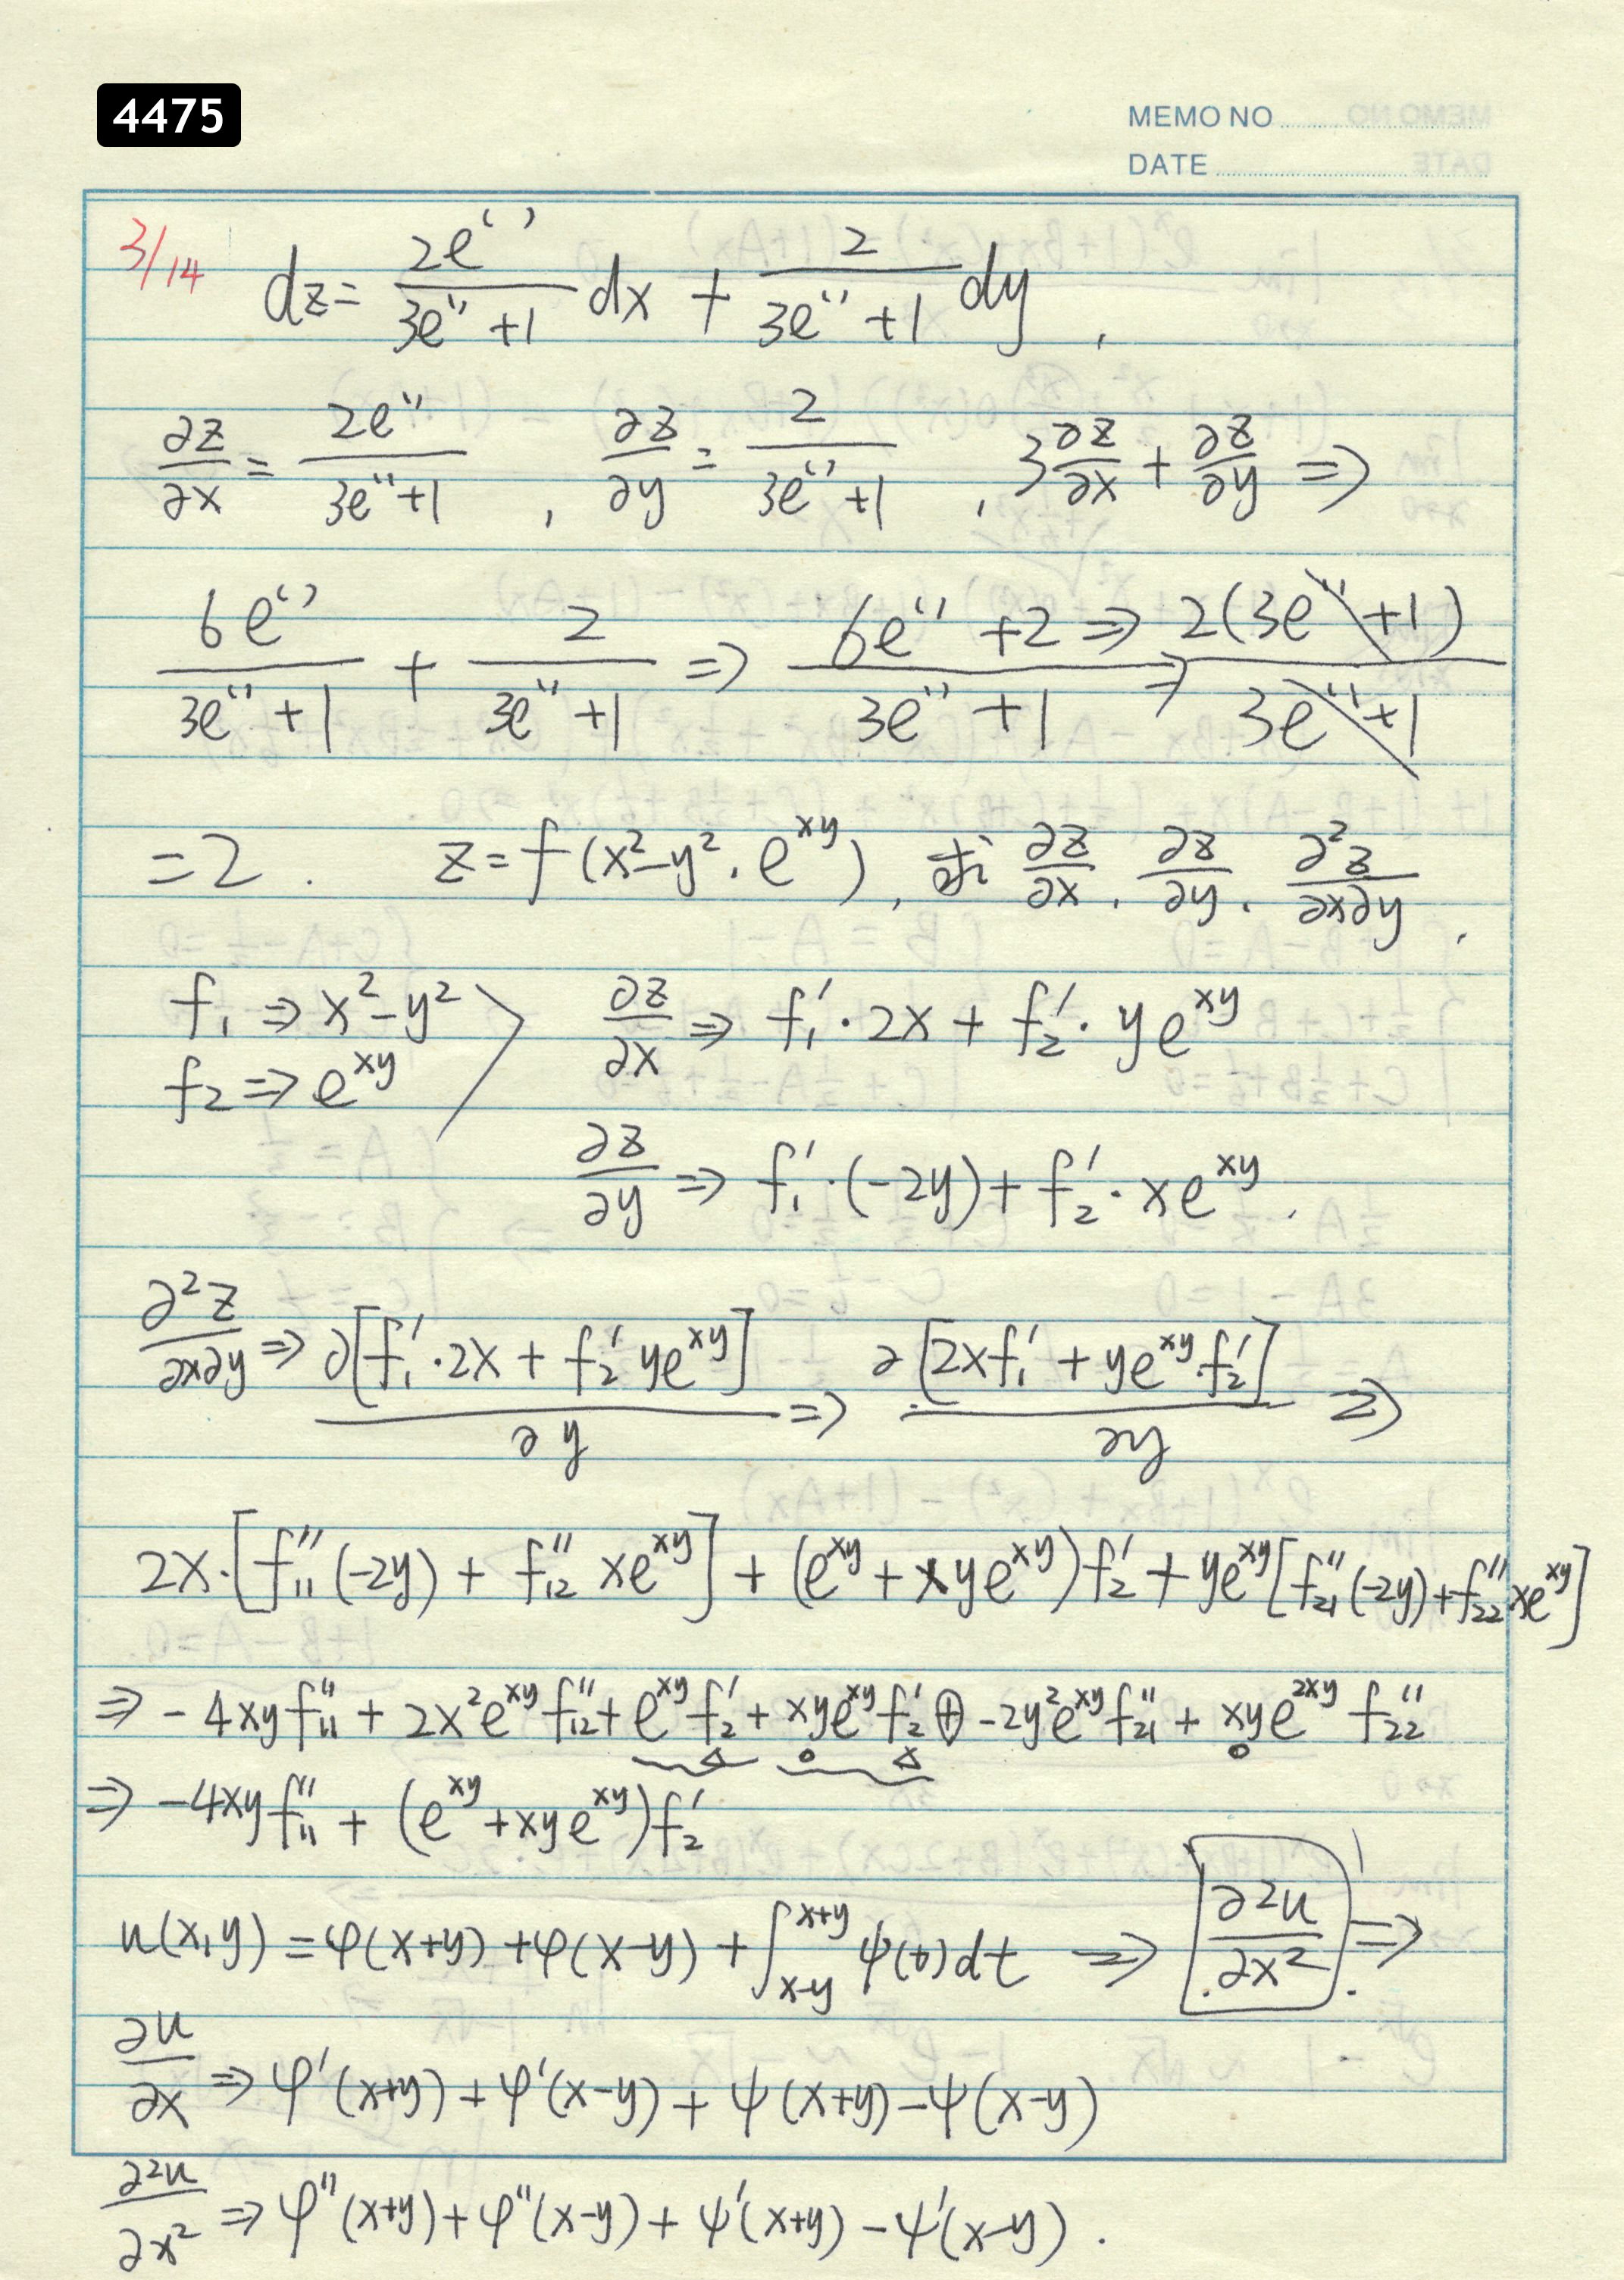 4475
MEMO NO
DATE
3/14 dz = \frac{2e^{( )}}{3e^{( )}+1} dx + \frac{2}{3e^{( )}+1} dy ,
\frac{∂z}{∂x} = \frac{2e^{( )}}{3e^{( )}+1} , \frac{∂z}{∂y} = \frac{2}{3e^{( )}+1} , 3\frac{∂z}{∂x} + \frac{∂z}{∂y} ⇒
\frac{6e^{( )}}{3e^{( )}+1} + \frac{2}{3e^{( )}+1} ⇒ \frac{6e^{( )}+2}{3e^{( )}+1} ⇒ ⇒ \frac{2(3e^{( )}+1)}{3e^{( )}+1}
= 2 . z = f(x²-y², e^{xy}), 求 \frac{∂z}{∂x}, \frac{∂z}{∂y}, \frac{∂²z}{∂x∂y},
f₁ ⇒ x²-y² \frac{∂z}{∂x} ⇒ f₁'·2x + f₂'·ye^{xy}
f₂ ⇒ e^{xy}
\frac{∂z}{∂y} ⇒ f₁'·(-2y) + f₂'·xe^{xy}.
\frac{∂²z}{∂x∂y} ⇒ \frac{∂[f₁'·2x + f₂'ye^{xy}]}{∂y} ⇒ \frac{∂[2xf₁' + ye^{xy}·f₂']}{∂y} ⇒
2x·[f₁₁''(-2y) + f₁₂''xe^{xy}] + (e^{xy} + xye^{xy})f₂' + ye^{xy}[f₂₁''(-2y) + f₂₂''xe^{xy}]
⇒ -4xyf₁₁'' + 2x²e^{xy}f₁₂'' + e^{xy}f₂' + xye^{xy}f₂' ⊕ -2y²e^{xy}f₂₁'' + xye^{2xy}f₂₂''
⇒ -4xyf₁₁'' + (e^{xy} + xye^{xy})f₂'
u(x,y) = φ(x+y) + φ(x-y) + ∫_{x-y}^{x+y} ψ(t)dt ⇒ \frac{∂²u}{∂x²} ⇒
\frac{∂u}{∂x} ⇒ φ'(x+y) + φ'(x-y) + ψ(x+y) - ψ(x-y)
\frac{∂²u}{∂x²} ⇒ φ''(x+y) + φ''(x-y) + ψ'(x+y) - ψ'(x-y).